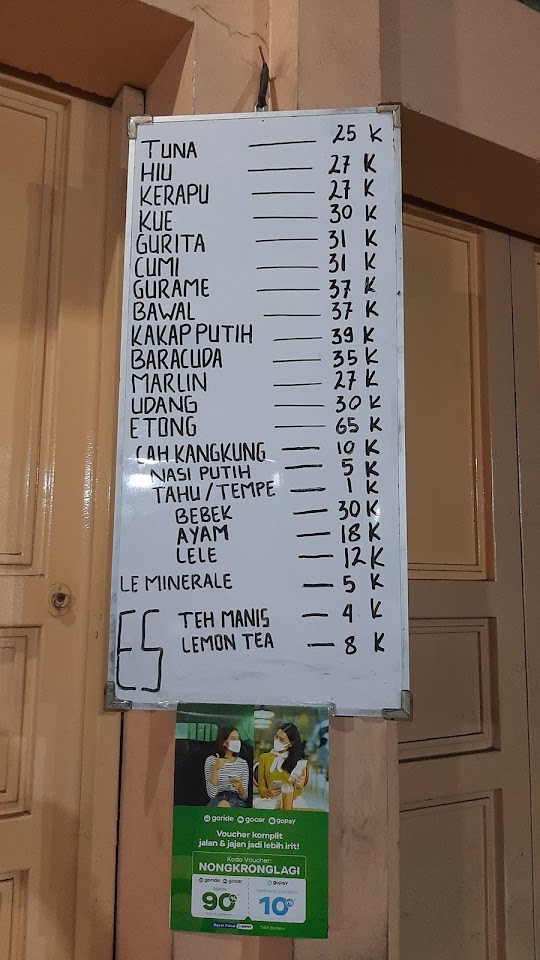 TUNA — 25 K
HIU — 27 K
KERAPU — 27 K
KUE — 30 K
GURITA — 31 K
CUMI — 31 K
GURAME — 37 K
BAWAL — 37 K
KAKAP PUTIH — 39 K
BARACUDA — 35 K
MARLIN — 27 K
UDANG — 30 K
ETONG — 65 K
CAH KANGKUNG — 10 K
NASI PUTIH — 5 K
TAHU / TEMPE — 1 K
BEBEK — 30 K
AYAM — 18 K
LELE — 12 K
LE MINERALE — 5 K
ES TEH MANIS — 4 K
LEMON TEA — 8 K
goride gocar gopay
Voucher komplit
jalan & jajan jadi lebih irit!
Kode Voucher:
NONGKRONGLAGI
goride gocar gopay
90% 10%